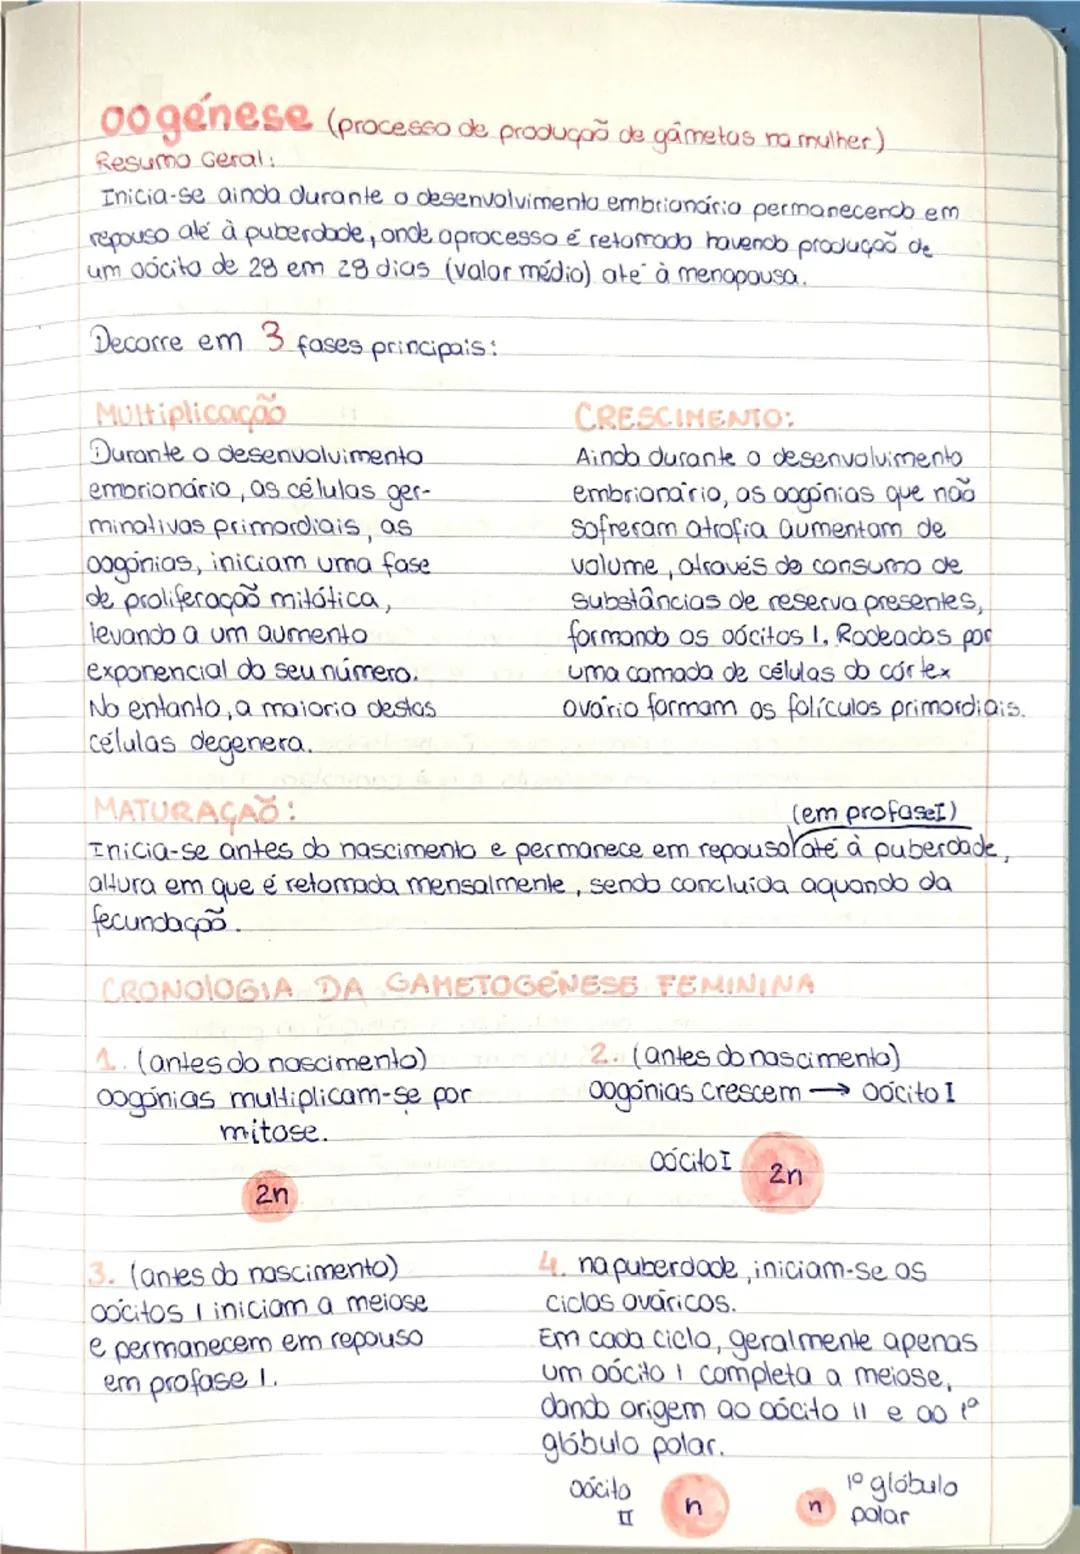 oogénese (processo de produção de gâmetas na mulher)
Resumo Geral:
Inicia-se ainda durante o desenvolvimento embrionário permanecendo em
repouso até à puberdade, onde o processo é retomado havendo produção de
um oócito de 28 em 28 dias (valor médio) até à menopausa.
Decorre em 3 fases principais:
Multiplicação
Durante o desenvolvimento
embrionário, as células ger-
minativas primordiais, as
oogónias, iniciam uma fase
de proliferação mitótica,
levando a um aumento
exponencial do seu número.
No entanto, a maioria destas
células degenera.
CRESCIMENTO:
Ainda durante o desenvolvimento
embrionário, as oogónias que não
sofreram atrofia aumentam de
volume, através do consumo de
substâncias de reserva presentes,
formando os oócitos I. Rodeados por
uma camada de células do córtex
ovário formam os folículos primordiais.
MATURAÇÃO:
(em profase I)
Inicia-se antes do nascimento e permanece em repouso até à puberdade,
altura em que é retomada mensalmente, sendo concluída aquando da
fecundação.
CRONOlOGIA DA GAMETOGÉNESE FEMININA
1. (antes do nascimento)
oogónias multiplicam-se por
mitose.
2n
2. (antes do nascimento)
oogónias crescem → oócito I
oócito I
2n
3. (antes do nascimento)
oócitos I iniciam a meiose
e permanecem em repouso
em profase I.
4. na puberdade, iniciam-se os
ciclos ováricos.
Em cada ciclo, geralmente apenas
um oócito I completa a meiose,
dando origem ao oócito II e ao 1º
glóbulo polar.
oócito
II
n
n
1º glóbulo
polar